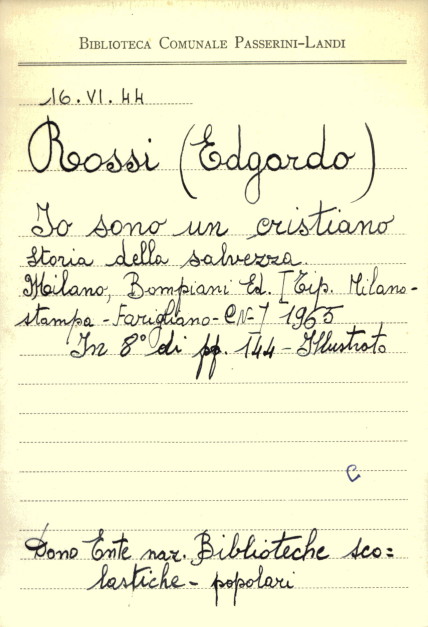 BIBLIOTECA COMUNALE PASSERINI-LANDI
16.VI.44
Rossi (Edgardo)
Io sono un cristiano
Storia della salvezza.
Milano, Bompiani Ed. [Tip. Milano-
stampa - Farigliano - CN-] 1965
In 8° di pp. 144 - Illustrato
C
Dono Ente naz. Biblioteche sco=
lastiche - popolari